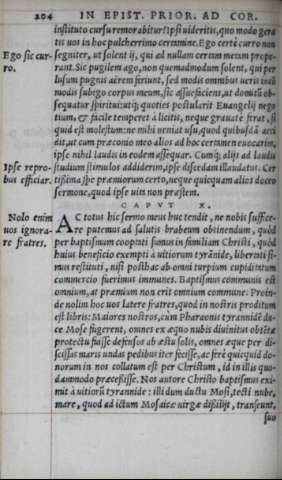 204 IN EPIST. PRIOR. AD COR.
instituto cursu remorabitur? Ipsi uideritis, quo modo gera
tis uos in hoc pulcherrimo certamine. Ego certè curro non
Ego sic cur-
ro.
segniter, ut solent ij, qui ad nullam certam metam prope-
rant. Sic pugilem ago, non quemadmodum solent, qui per
lusum pugnis aërem feriunt, sed modis omnibus ueris in
modis subego corpus meum, sic assueficiens, ut domitũ ob-
sequatur spirituiutiq; quoties postularit Euangelij nego
tium, & facile temperet à licitis, neque grauatè ferat, si
quid est molestum: ne mihi ueniat usu, quod quibusdã acci
dit, ut cum præconio meo alios ad hoc certamen euocarim,
ipse nihil laudis in eodem assequar. Cumq́; alijs ad laudis
Ipse repro-
bus efficiar.
studium stimulos addiderim, ipse discedam illaudatus. Cer
tissima spe præmiorum certo, neque quicquam alios doceo
sermone, quod ipse uita non præstem.
CAPVT X.
Nolo enim
uos ignora-
re fratres.
AC totus hic sermo meus huc tendit, ne nobis suffice-
re putemus ad salutis brabeum obtinendum, quòd
per baptismum cooptati sumus in familiam Christi, quòd
huius beneficio exempti à uitiorum tyrãnide, libertati su-
mus restituti, nisi posthac ab omni turpium cupiditatum
commercio fuerimus immunes. Baptismus communis est
omnium, at præmium non erit omnium commune. Proin-
de nolim hoc uos latere fratres, quod in nostris proditum
est libris: Maiores nostros, cùm Pharaonis tyrannidẽ du-
ce Mose fugerent, omnes ex æquo nubis diuinitus obtẽtæ
protectu fuisse defensos ab æstu solis, omnes æque per di-
scissas maris undas pedibus iter fecisse, ac ferè quicquid do-
norum in nos collatum est per Christum, id in illis quo-
dammodo præcessisse. Nos autore Christo baptismus exi-
mit à uitiorũ tyrannide: illi dum ductu Mosi, tecti nube,
mare, quod ad ictum Mosaicæ uirgæ dissilijt, transeunt,
suo